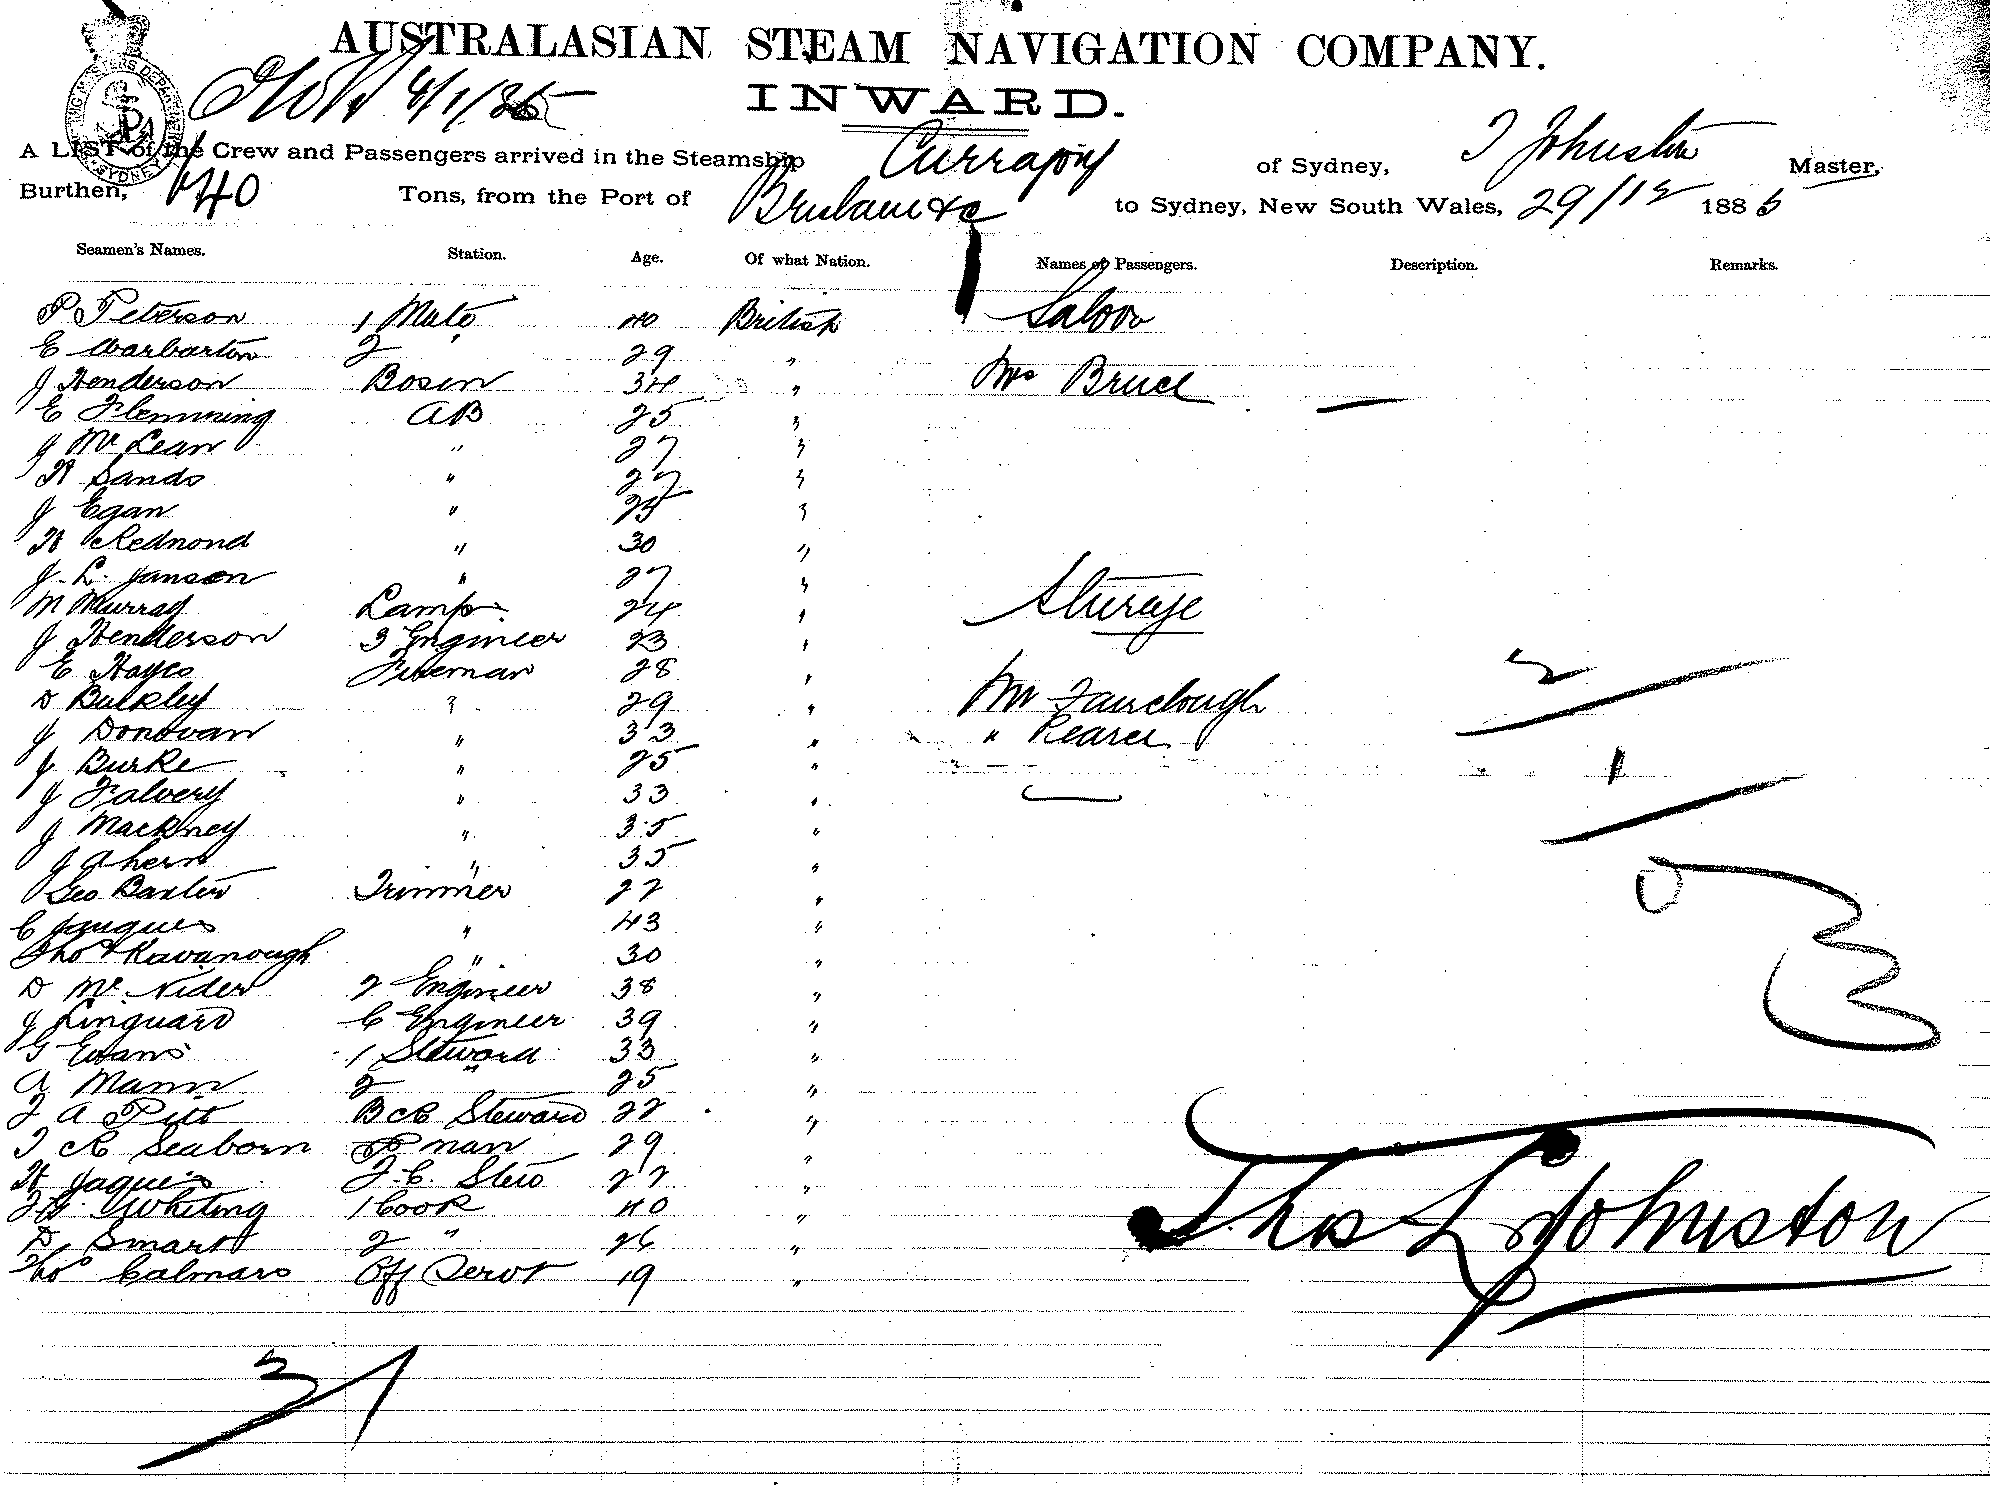 AUSTRALASIAN STEAM NAVIGATION COMPANY.
INWARD.
A LIST of the Crew and Passengers arrived in the Steamship Currajong of Sydney, T Johnston Master,
Burthen, 740 Tons, from the Port of Brisbane &c to Sydney, New South Wales, 29/12 1885
Seamen's Names. Station. Age. Of what Nation. Names of Passengers. Description. Remarks.
P Peterson 1 Mate 40 British Saloon
E Warbarton 2 " 29 "
J Henderson Bosen 34 " Mrs Bruce
E Flemming AB 25 "
J McLean " 27 "
W Sands " 27 "
J Egan " 25 "
W Redmond " 30 "
J. L. Janson " 27 "
M Murray Lamps 24 " Steerage
J Henderson 3 Engineer 23 "
E Hayes Fireman 28 " 2
D Bulkley " 29 " Mr Fairclough
J Donovan " 33 " " Pearce
J Burke " 25 " 1
J Falvery " 33 "
J Mackney " 35 "
J Ahern " 35 "
Geo Baxter Trimmer 22 " 3
C Jaques " 43 "
Thos Kavanough " 30 "
D McNider 2 Engineer 38 "
J Linguard C Engineer 39 "
G Evans 1 Steward 33 "
A Mann 2 " 25 "
F A Pitt Bck Steward 22 "
T R Seaborn P man 29 "
H Jaques F.C. Stew 22 "
Whiting 1 Cook 40 " Thos L Johnston
D Smart 2 " 26 "
Thos Calmars Off Servt 19 "
31